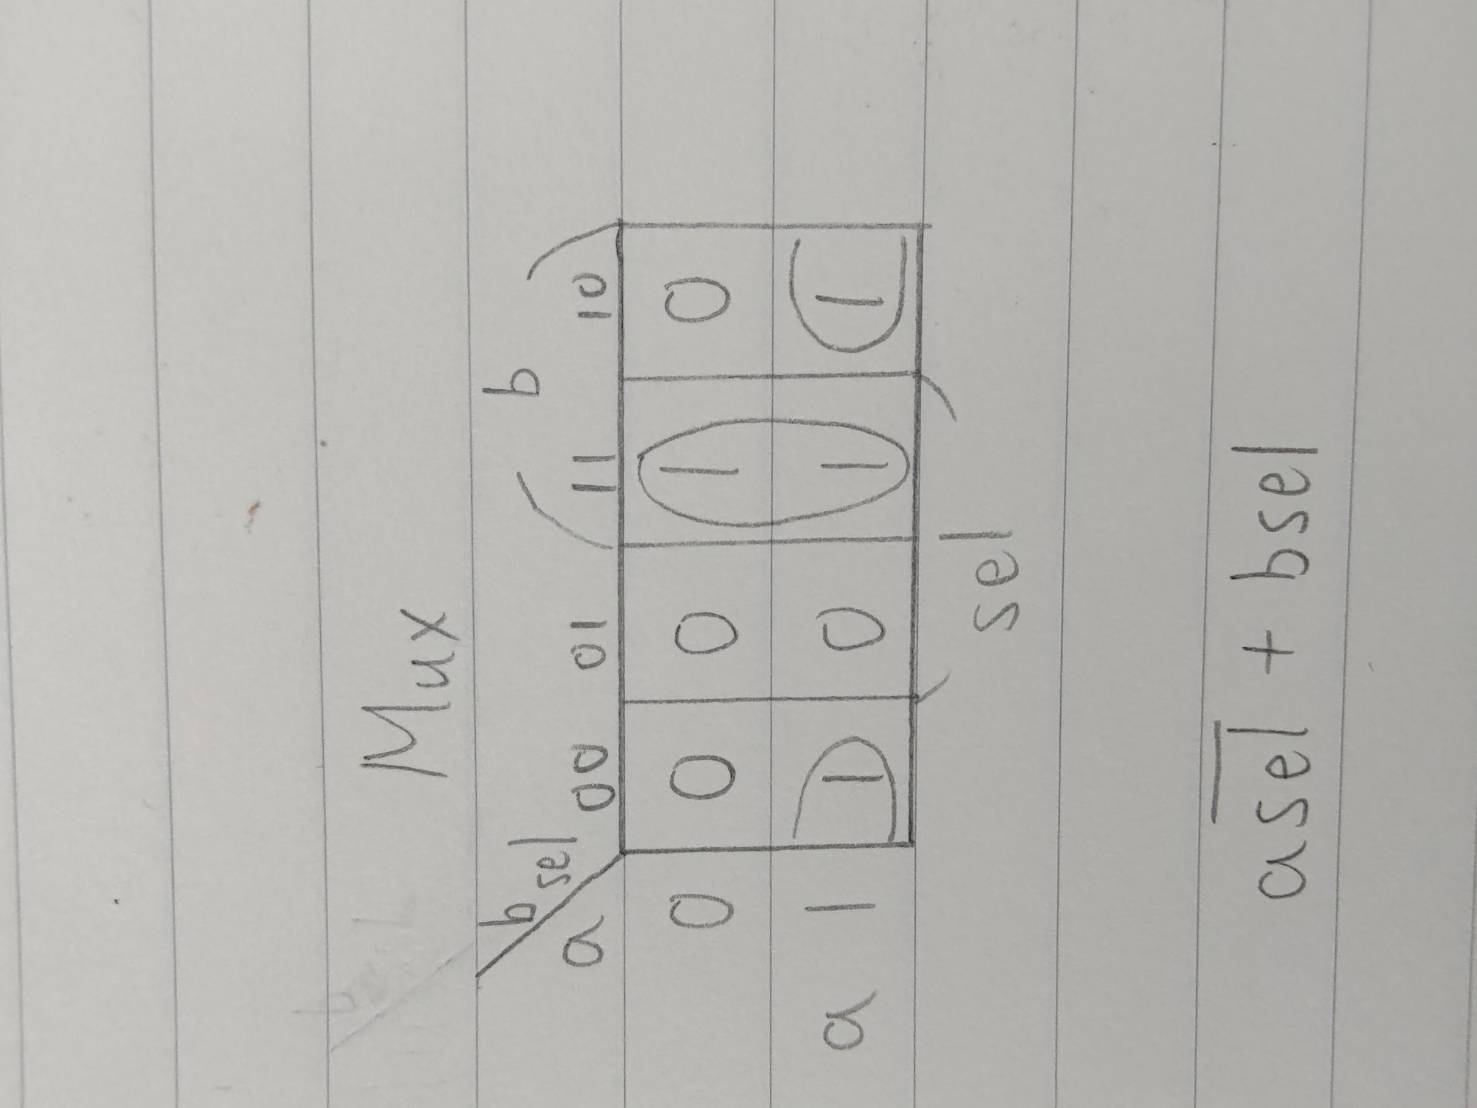 Mux
b
b
sel
a 00 01 11 10
0 0 0 1 0
a 1 1 0 1 1
sel
a s̅e̅l̅ + bsel